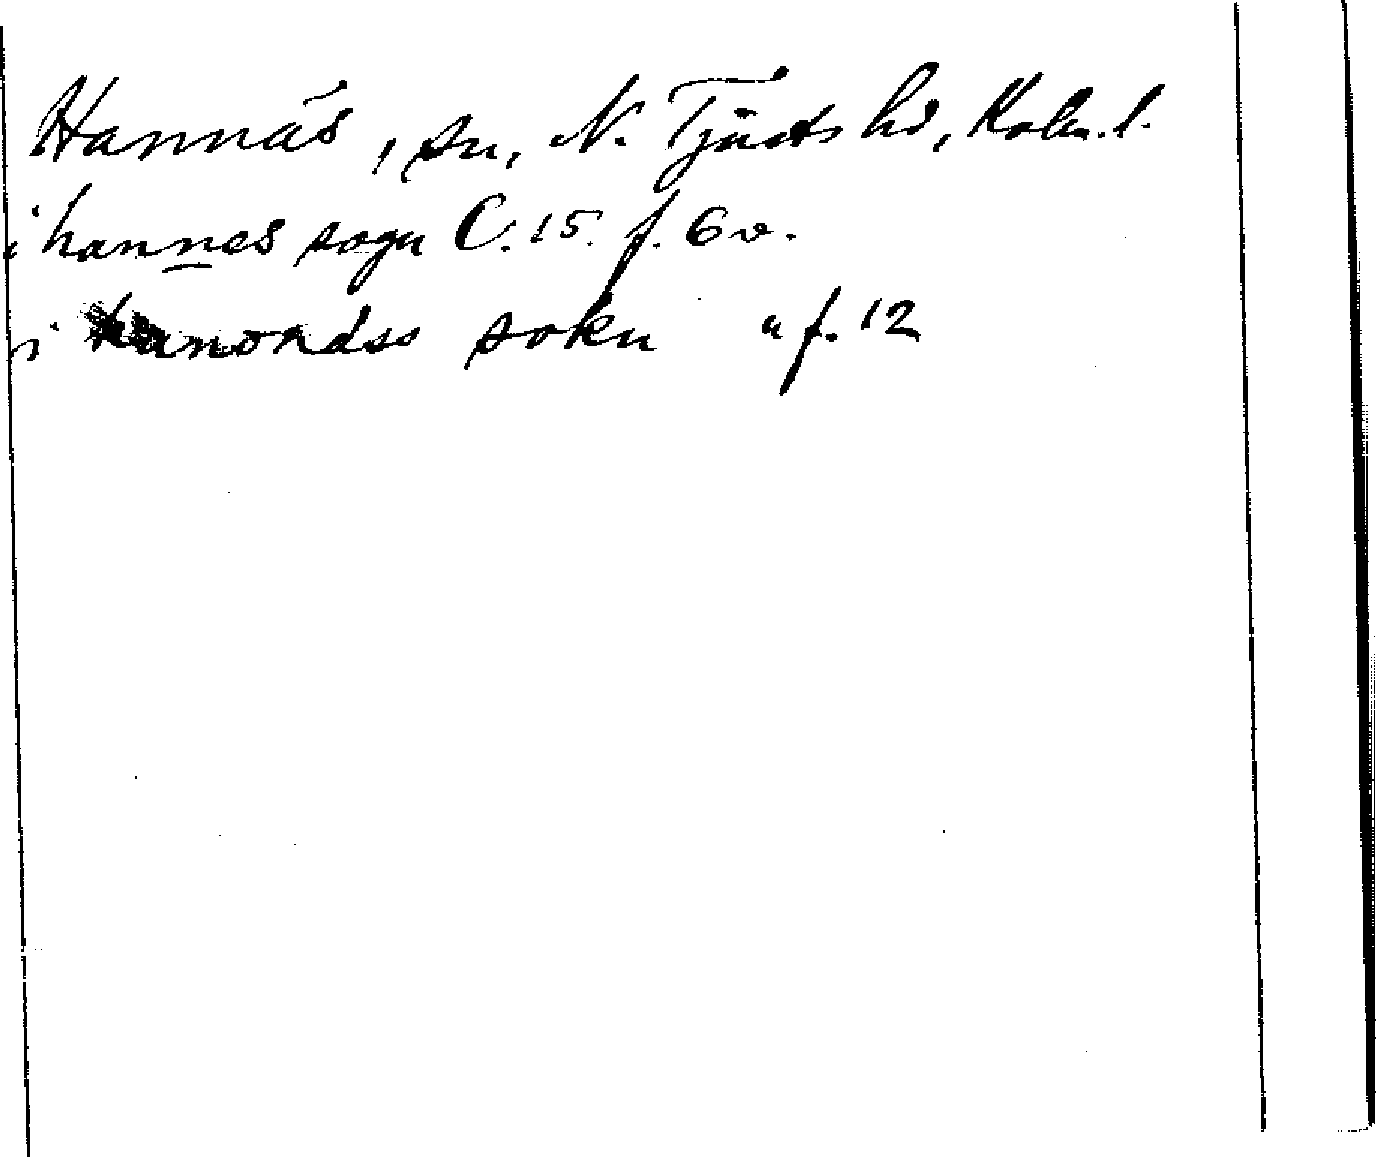 Hannäs, sn, N. Tjusts hd, Kalm. l.
i hannes sogn C. 15. f. 6 v.
i hanonäss sokn " f. 12